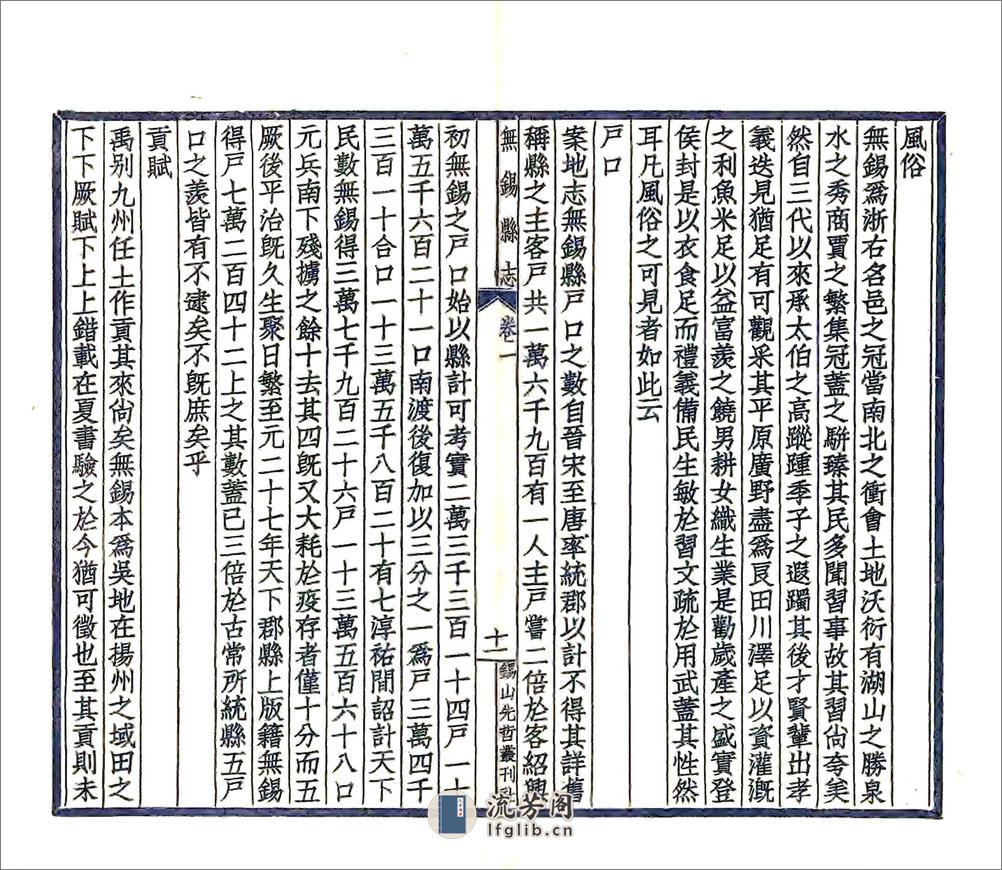 風俗
無錫爲浙右名邑之冠當南北之衝會土地沃衍有湖山之勝泉
水之秀商賈之繁集冠蓋之駢臻其民多聞習事故其習尚夸美
然自三代以來承太伯之高蹤踵季子之遐躅其後才賢輩出孝
義迭見猶足有可觀采其平原廣野盡爲良田川澤足以資灌漑
之利魚米足以益富羨之饒男耕女織生業是勸歲產之盛實登
侯封是以衣食足而禮義備民生敏於習文疏於用武蓋其性然
耳凡風俗之可見者如此云
戸口
案地志無錫縣戸口之數自晉宋至唐率統郡以計不得其詳舊
稱縣之主客戸共一萬六千九百有一人主戸嘗二倍於客紹興
無錫縣志
卷一
十一
錫山先哲叢刊
初無錫之戸口始以縣計可考實二萬三千三百一十四戸一十
萬五千六百二十一口南渡後復加以三分之一爲戸三萬四千
三百一十合口一十三萬五千八百二十有七淳祐間詔計天下
民數無錫得三萬七千九百二十六戸一十三萬五百六十八口
元兵南下殘擄之餘十去其四旣又大耗於疫存者僅十分而五
厥後平治旣久生聚日繁至元二十七年天下郡縣上版籍無錫
得戸七萬二百四十二上之其數蓋已三倍於古常所統縣五戸
口之羨皆有不逮矣不旣庶矣乎
貢賦
禹别九州任土作貢其來尚矣無錫本爲吳地在揚州之域田之
下下厥賦下上上錯載在夏書驗之於今猶可徵也至其貢則未
流芳阁
lfglib.cn